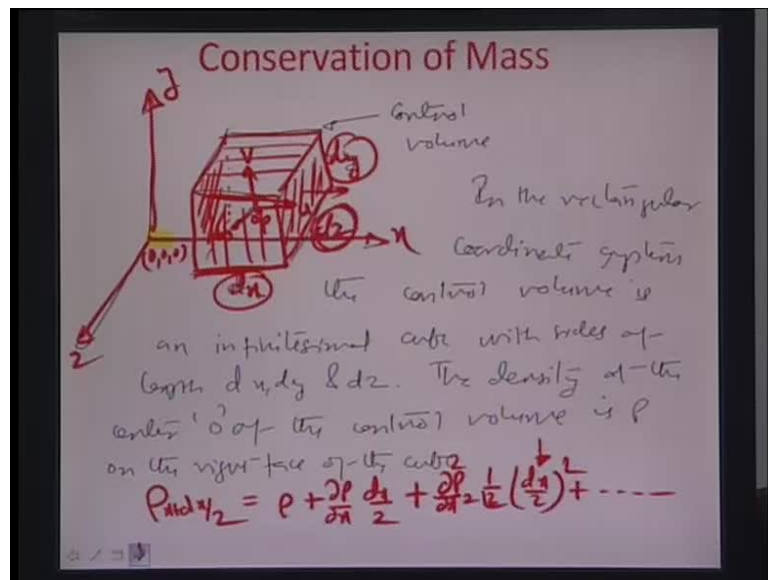 Conservation of Mass
y
control
volume
v
dy
u
dz
x
(0,0,0)
dx
z
In the rectangular
coordinate system
the control volume is
an infinitesimal cube with sides of
length dx, dy & dz. The density at the
center 'O' of the control volume is ρ
on the right face of the cube
ρx+dx/2 = ρ + ∂ρ/∂x dx/2 + ∂ρ²/∂x² 1/2 (dx/2)² + ......